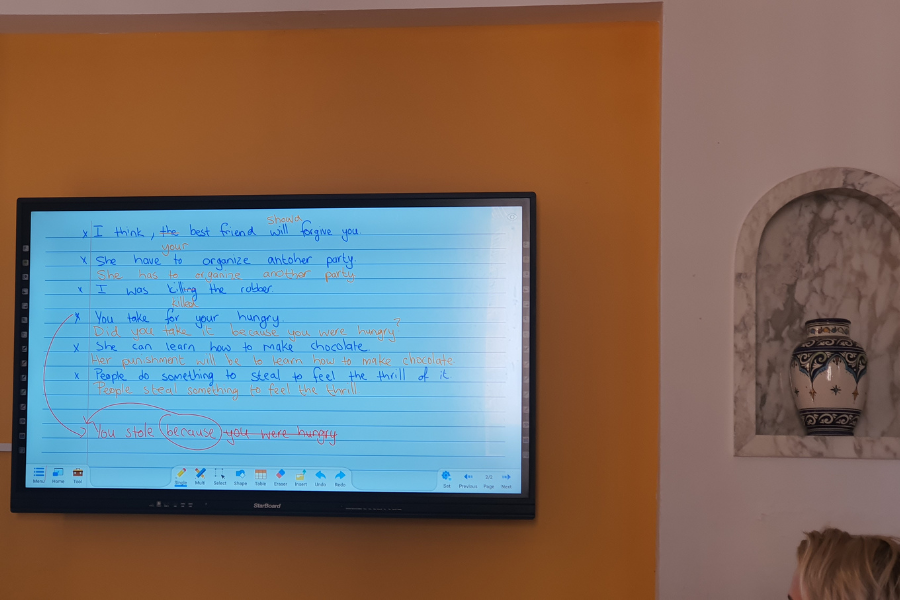 should
x I think, the best friend will forgive you.
your
x She have to organize antoher party.
She has to organize another party
x I was killing the robber.
killed
x You take for your hungry.
Did you take it because you were hungry?
x She can learn how to make chocolate
Her punishment will be to learn how to make chocolate
x People do something to steal to feel the thrill of it
People steal something to feel the thrill
You stole because you were hungry
Menu Home Tool Single Multi Select Shape Table Eraser Insert Undo Redo Previous Page Next
StarBoard